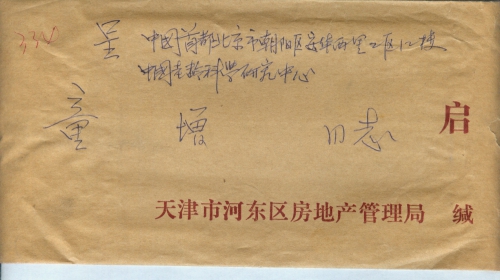 330
呈 中国首都北京市朝阳区安华西里二区12楼
中国老龄科学研究中心
童 增 同志
启
天津市河东区房地产管理局 缄